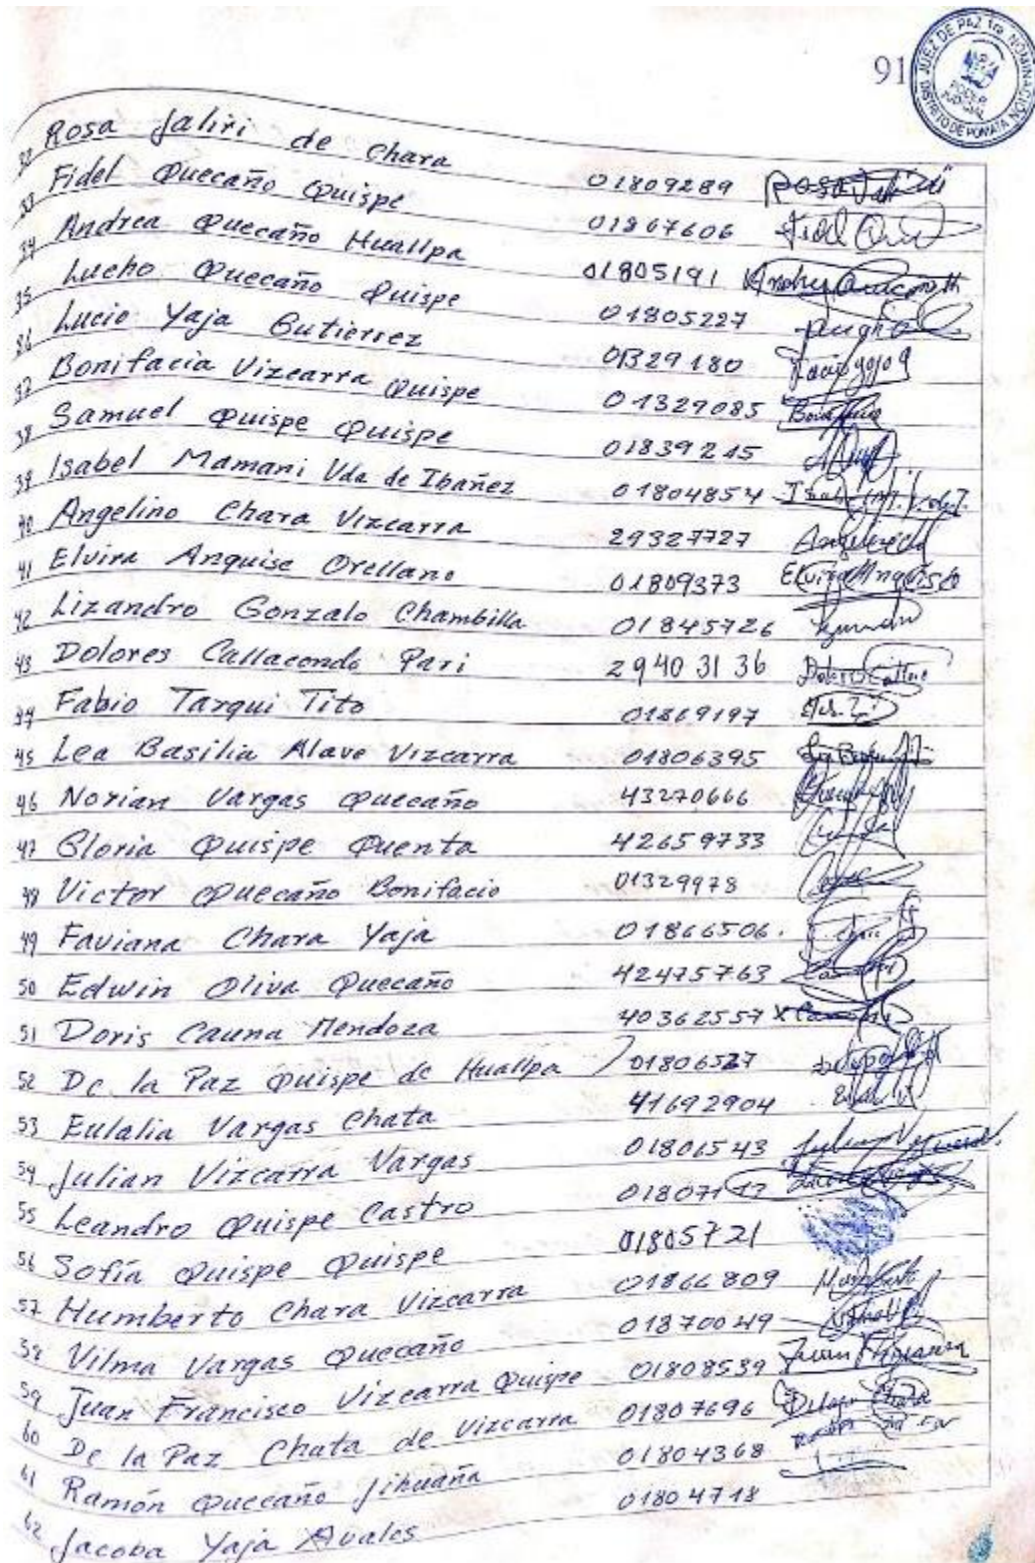 91
JUEZ DE PAZ 1ra. NOMINACION
PODER JUDICIAL
DISTRITO DE POMATA
32 Rosa Jaliri de Chara 01809289 ROSA Jaliri
33 Fidel Quecaño Quispe 01867606 Fidel
34 Andrea Quecaño Huallpa 01805191
35 Lucho Quecaño Quispe 01805227
36 Lucio Yaja Gutierrez 01329180
37 Bonifacia Vizcarra Quispe 01327085
38 Samuel Quispe Quispe 01839215
39 Isabel Mamani Vda de Ibañez 01804854
40 Angelino Chara Vizcarra 29327727
41 Elvira Anquise Orellano 01809373 Elvira Anquise
42 Lizandro Gonzalo Chambilla 01845726
43 Dolores Callacondo Pari 29403136
44 Fabio Tarqui Tito 01869197
45 Lea Basilia Alave Vizcarra 01806395
46 Norian Vargas Quecaño 43270666
47 Gloria Quispe Quenta 42659733
48 Victor Quecaño Bonifacio 01329978
49 Faviana Chara Yaja 01866506.
50 Edwin Oliva Quecaño 42475763
51 Doris Cauna Mendoza 40362557
52 De la Paz Quispe de Huallpa 01806527
53 Eulalia Vargas Chata 41692904
54 Julian Vizcarra Vargas 01801543
55 Leandro Quispe Castro
56 Sofía Quispe Quispe 01805721
57 Humberto Chara Vizcarra 01866809
58 Vilma Vargas Quecaño 01870049
59 Juan Francisco Vizcarra Quispe 01808539 Juan
60 De la Paz Chata de Vizcarra 01807696
61 Ramón Quecaño Jihuaña 01804368
62 Jacoba Yaja Avalos 01804718